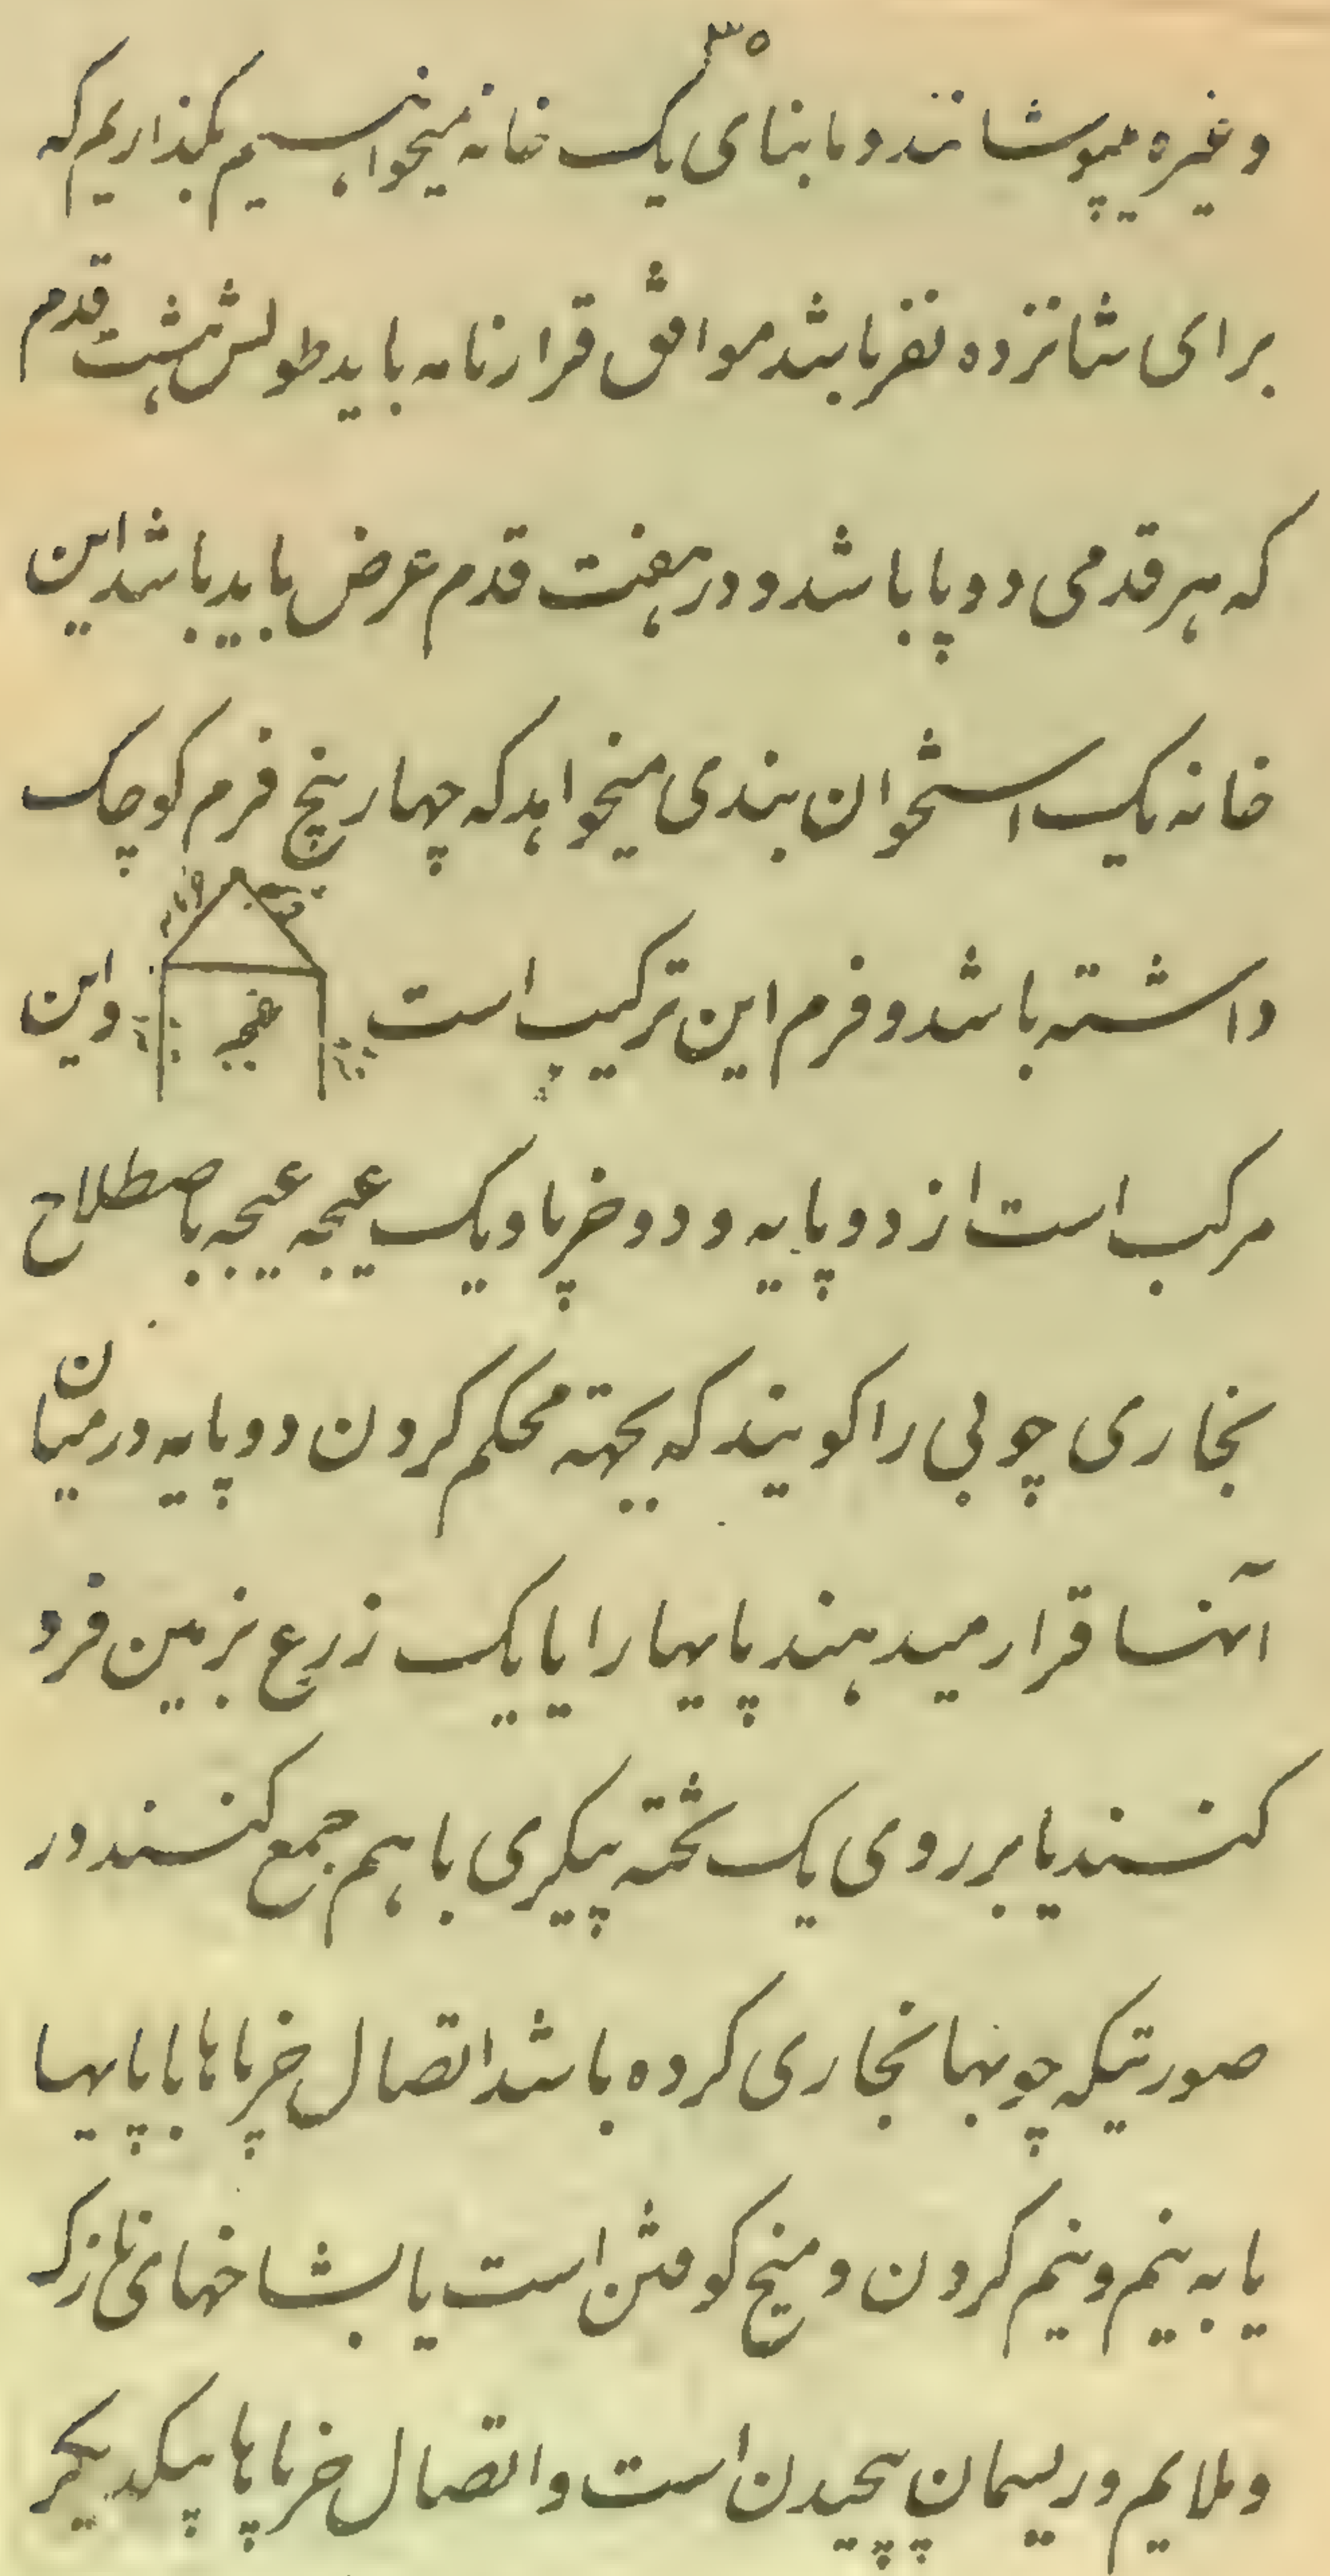 ۳۵
و غیره میپوشانند و ما بنای یک خانه میخواهیم بگذاریم که
برای شانزده نفر باشد موافق قرارنامه باید طولش هشت قدم
که هر قدمی دو پا باشد و در هفت قدم عرض باید باشد این
خانه یک استخوان بندی میخواهد که چهار پنج فرم کوچک
داشته باشد و فرم این ترکیب است و این
مرکب است از دو پایه و دو خرپا و یک عیجه عیجه باصطلاح
نجاری چوبی را کویند که بجهته محکم کردن دو پایه در میان
آنها قرار میدهند پایها را یا یک زرع بزمین فرو
کنند یا بر روی یک تخته پیکری با هم جمع کنند در
صورتیکه چوبها نجاری کرده باشد اتصال خرپاها با پایها
یا به نیم و نیم کردن و میخ کوفتن است یا بشاخهای نازک
و ملایم و ریسمان پیچیدن است و اتصال خرپاها بیکدیکر